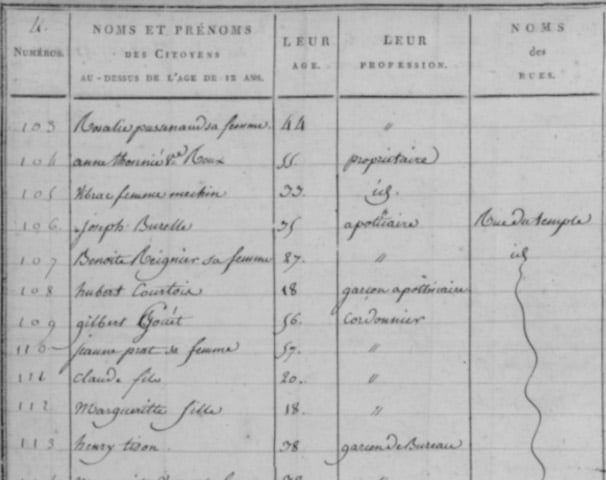 4.
NUMÉROS. NOMS ET PRÉNOMS DES CITOYENS AU-DESSUS DE L'AGE DE 12 ANS. LEUR AGE. LEUR PROFESSION. NOMS des RUES.
103 Rosalie sa femme. 44 "
104 anne thonnié Ve Roux 55. propriétaire
105 femme mechin 33. id.
106 Joseph Burelle 35 apotticaire Rue du temple
107 Benoite Reignier sa femme 27. " id
108 hubert Courtois 18 garçon apotticaire
109 gilbert 56. Cordonnier
110 jeanne prat sa femme 57. "
111 claude fils 20. "
112 Margueritte fille 18. "
113 henry tison 38 garcon de Bureau